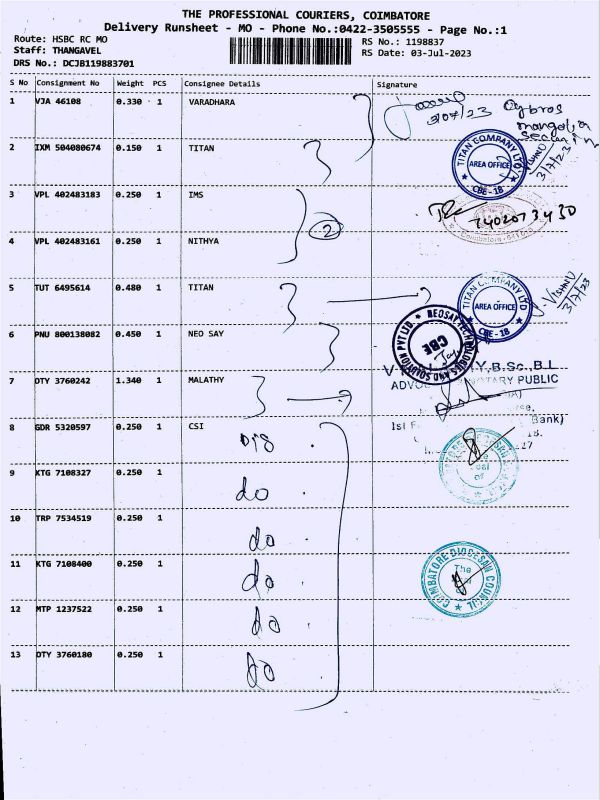 THE PROFESSIONAL COURIERS, COIMBATORE
Delivery Runsheet - MO - Phone No.:0422-3505555 - Page No.:1
Route: HSBC RC MO
RS No.: 1198837
Staff: THANGAVEL
RS Date: 03-Jul-2023
DRS No.: DCJB119883701
S No Consignment No Weight PCS Consignee Details Signature
1 VJA 46108 0.330 1 VARADHARA
3/07/23
2 IXM 504080674 0.150 1 TITAN
TITAN COMPANY LTD
AREA OFFICE
CBE-18
VISHNU
3/7/23
3 VPL 402483183 0.250 1 IMS
2
4 VPL 402483161 0.250 1 NITHYA
5 TUT 6495614 0.480 1 TITAN
TITAN COMPANY LTD
AREA OFFICE
CBE-18
VISHNU
3/7/23
6 PNU 800138082 0.450 1 NEO SAY
CBE
7 OTY 3760242 1.340 1 MALATHY
Y,B.Sc.,B.L
NOTARY PUBLIC
Bank)
8 GDR 5320597 0.250 1 CSI
9 KTG 7108327 0.250 1
do
10 TRP 7534519 0.250 1
do
11 KTG 7108400 0.250 1
do
COIMBATORE DIOCESAN COUNCIL
The
12 MTP 1237522 0.250 1
do
13 OTY 3760180 0.250 1
do